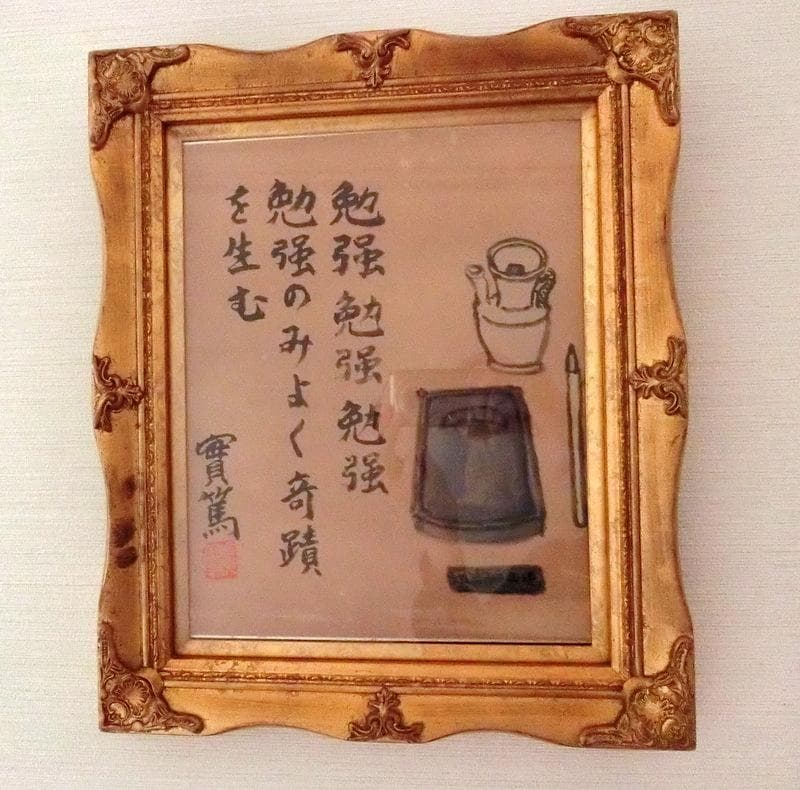 勉强勉强勉强
勉强のみよく奇蹟
を生む
實篤